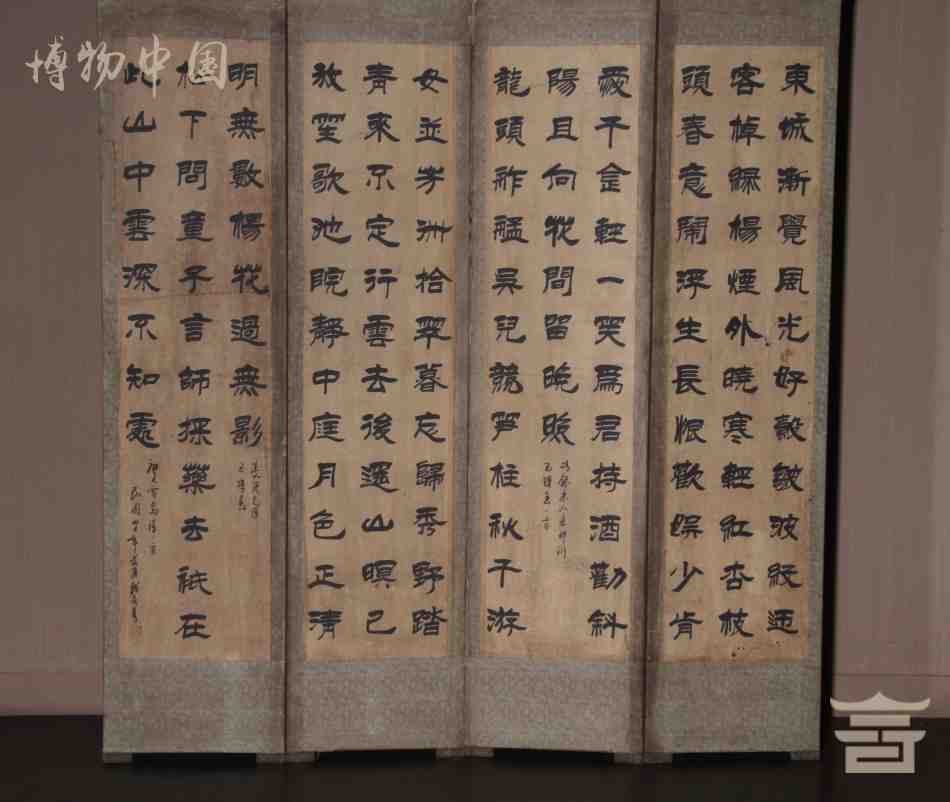 博物中国
東城漸覺風光好縠皺波紋迎
客棹綠楊煙外曉寒輕紅杏枝
頭春意鬧浮生長恨歡娛少肯
愛千金輕一笑爲君持酒勸斜
陽且向花間留晚照
龍頭舴艋吳兒競筍柱秋千游
女並芳洲拾翠暮忘歸秀野踏
青來不定行雲去後遙山暝已
放笙歌池院靜中庭月色正清
明無數楊花過無影
松下問童子言師採藥去祇在
此山中雲深不知處
民國